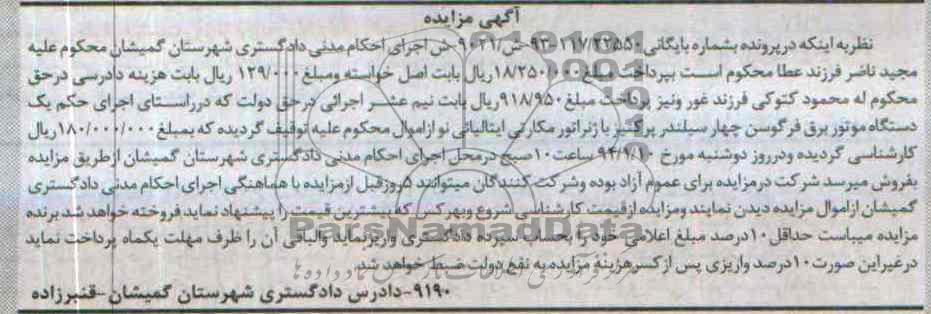 آگهی مزایده
نظر به اینکه در پرونده بشماره بایگانی اجرای احکام مدنی دادگستری شهرستان گمیشان محکوم علیه
مجید ناضر فرزند عطا محکوم است بپرداخت مبلغ ۱۸/۲۵۰/۰۰۰ ریال بابت اصل خواسته ومبلغ ۱۲۹/۰۰۰ ریال بابت هزینه دادرسی درحق
محکوم له محمود کتوکی فرزند غور ونیز پرداخت مبلغ ۹۱۸/۹۵۰ ریال بابت نیم عشر اجرائی درحق دولت که درراستای اجرای حکم یک
دستگاه موتور برق فرگوسن چهار سیلندر پرکنیز با ژنراتور مکارتی ایتالیائی نو ازاموال محکوم علیه توقیف گردیده که بمبلغ ۱۸۰/۰۰۰/۰۰۰ ریال
کارشناسی گردیده ودرروز دوشنبه مورخ ساعت ۱۰ صبح درمحل اجرای احکام مدنی دادگستری شهرستان گمیشان ازطریق مزایده
بفروش میرسد شرکت درمزایده برای عموم آزاد بوده وشرکت کنندگان میتوانند ۵ روز قبل ازمزایده با هماهنگی اجرای احکام مدنی دادگستری
گمیشان ازاموال مزایده دیدن نمایند ومزایده ازقیمت کارشناسی شروع وبهرکس که بیشترین قیمت را پیشنهاد نماید فروخته خواهد شد برنده
مزایده میباست حداقل ۱۰ درصد مبلغ اعلامی خود را بحساب سپرده دادگستری واریز نماید والباقی آن را ظرف مهلت یکماه پرداخت نماید
درغیر این صورت ۱۰ درصد واریزی پس ازکسر هزینه مزایده به نفع دولت ضبط خواهد شد.
۹۱۹۰-دادرس دادگستری شهرستان گمیشان -قنبرزاده
ParsNamadData